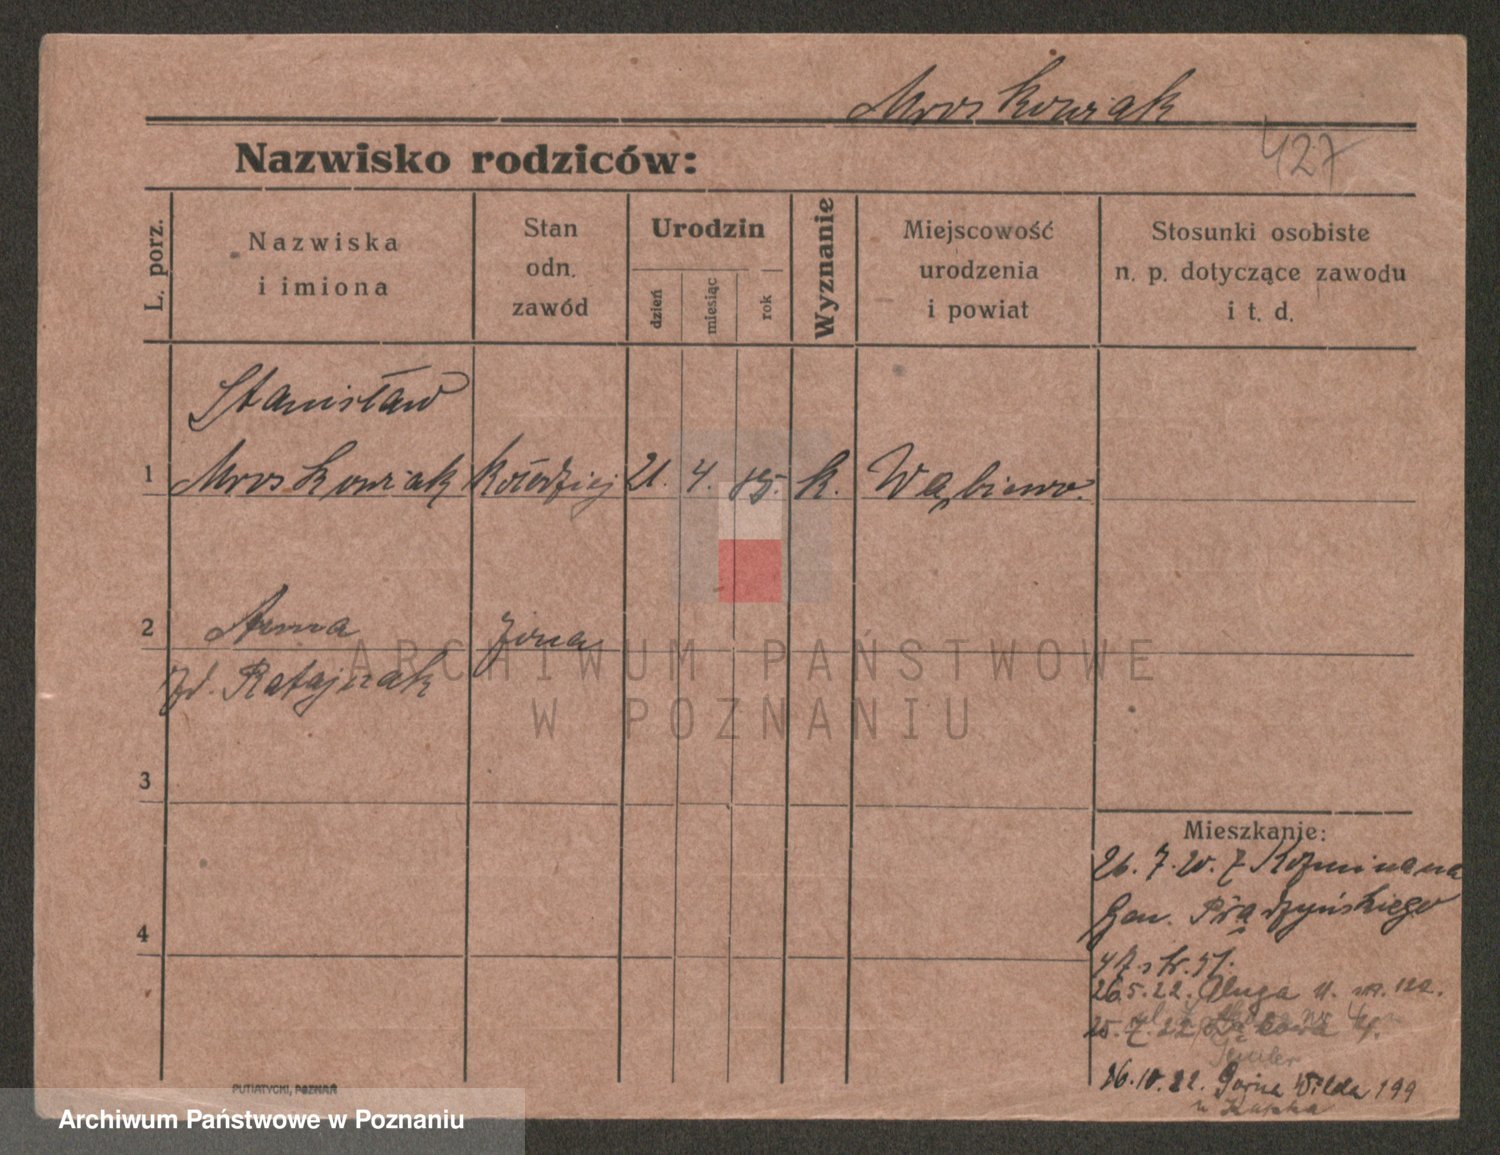 Mroskowiak
427
Nazwisko rodziców:
L. porz.
Nazwiska
i imiona
Stan
odn.
zawód
Urodzin
dzień
miesiąc
rok
Wyznanie
Miejscowość
urodzenia
i powiat
Stosunki osobiste
n. p. dotyczące zawodu
i t. d.
Stanisław
1 Mroskowiak kołodziej 21. 4. 85. k. Wąbiewo.
2 Anna żona
zd. Ratajczak
ARCHIWUM PAŃSTWOWE
W POZNANIU
3
4
Mieszkanie:
26. 7. 20. z Koźmina na
Gen. Prądzyńskiego
26.5.22. Długa 11. 122.
25. 7. 22 Łąkowa
16.10.22. Górna Wilda 199
PUTIATYCKI, POZNAŃ
Archiwum Państwowe w Poznaniu